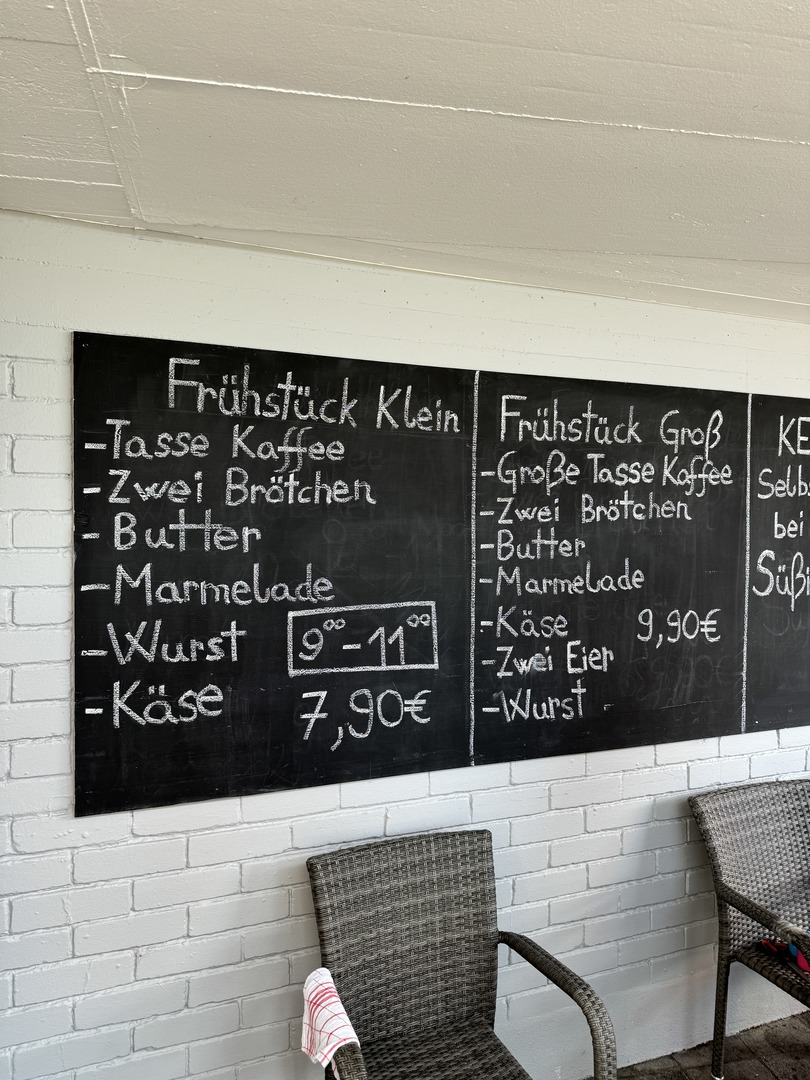 Frühstück Klein
-Tasse Kaffee
-Zwei Brötchen
-Butter
-Marmelade
-Wurst
9⁰⁰-11⁰⁰
-Käse
7,90€
Frühstück Groß
-Große Tasse Kaffee
-Zwei Brötchen
-Butter
-Marmelade
-Käse 9,90€
-Zwei Eier
-Wurst
bei